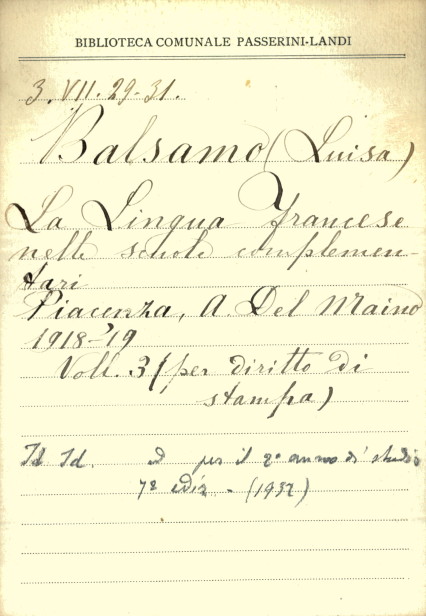 BIBLIOTECA COMUNALE PASSERINI-LANDI
3. VII. 29-31.
Balsamo (Luisa)
La Lingua francese
nelle scuole complemen-
tari
Piacenza, A. Del Maino
1918-'19
Voll. 3 (per diritto di
stampa)
Id Id. Id per il 2º anno di studio
7ª ediz. - (1932)